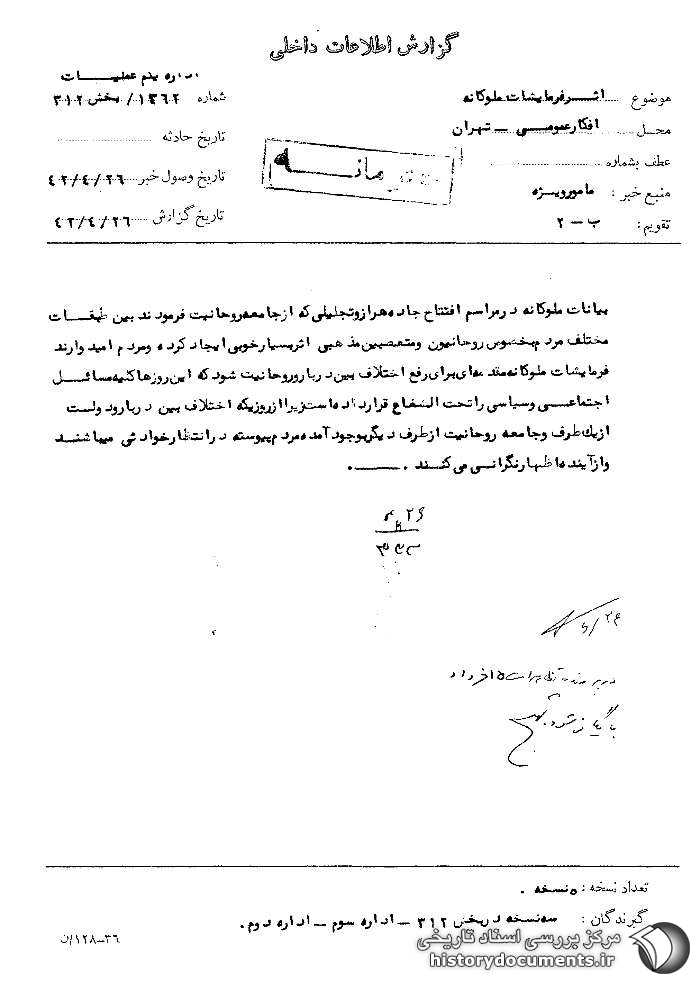 گزارش اطلاعات داخلی
موضوع اثر فرمایشات ملوکانه
محل افکار عمومی – تهران
عطف بشماره
منبع خبر : مامور ویژه
تقویم: ب – ۲
اداره یکم عملیات
شماره ۱۳۶۲/ بخش ۳۱۲
تاریخ حادثه
تاریخ وصول خبر ۴۲/۴/۲۶
تاریخ گزارش ۴۲/۴/۲۶
محرمانه
بیانات ملوکانه در مراسم افتتاح جاده هراز و تجلیلی که از جامعه روحانیت فرمودند بین طبقات
مختلف مردم بخصوص روحانیون و متعصبین مذهبی اثر بسیار خوبی ایجاد کرده و مردم امیدوارند
فرمایشات ملوکانه مقدمه‌ای برای رفع اختلاف بین دربار و روحانیت شود که این روزها کلیه مسائل
اجتماعی و سیاسی را تحت الشعاع قرار داده است زیرا از روزیکه اختلاف بین دربار و دولت
از یک طرف و جامعه روحانیت از طرف دیگر بوجود آمده مردم پیوسته در انتظار حوادثی میباشند
و از آینده اظهار نگرانی می کنند .
۲۶
۲۶
۱۵ خرداد
بایگانی شود
تعداد نسخه : ۵ نسخه .
گیرندگان : سه نسخه در بخش ۳۱۲ – اداره سوم – اداره دوم .
۳۶–۱۲۸/ن
مرکز بررسی اسناد تاریخی
historydocuments.ir